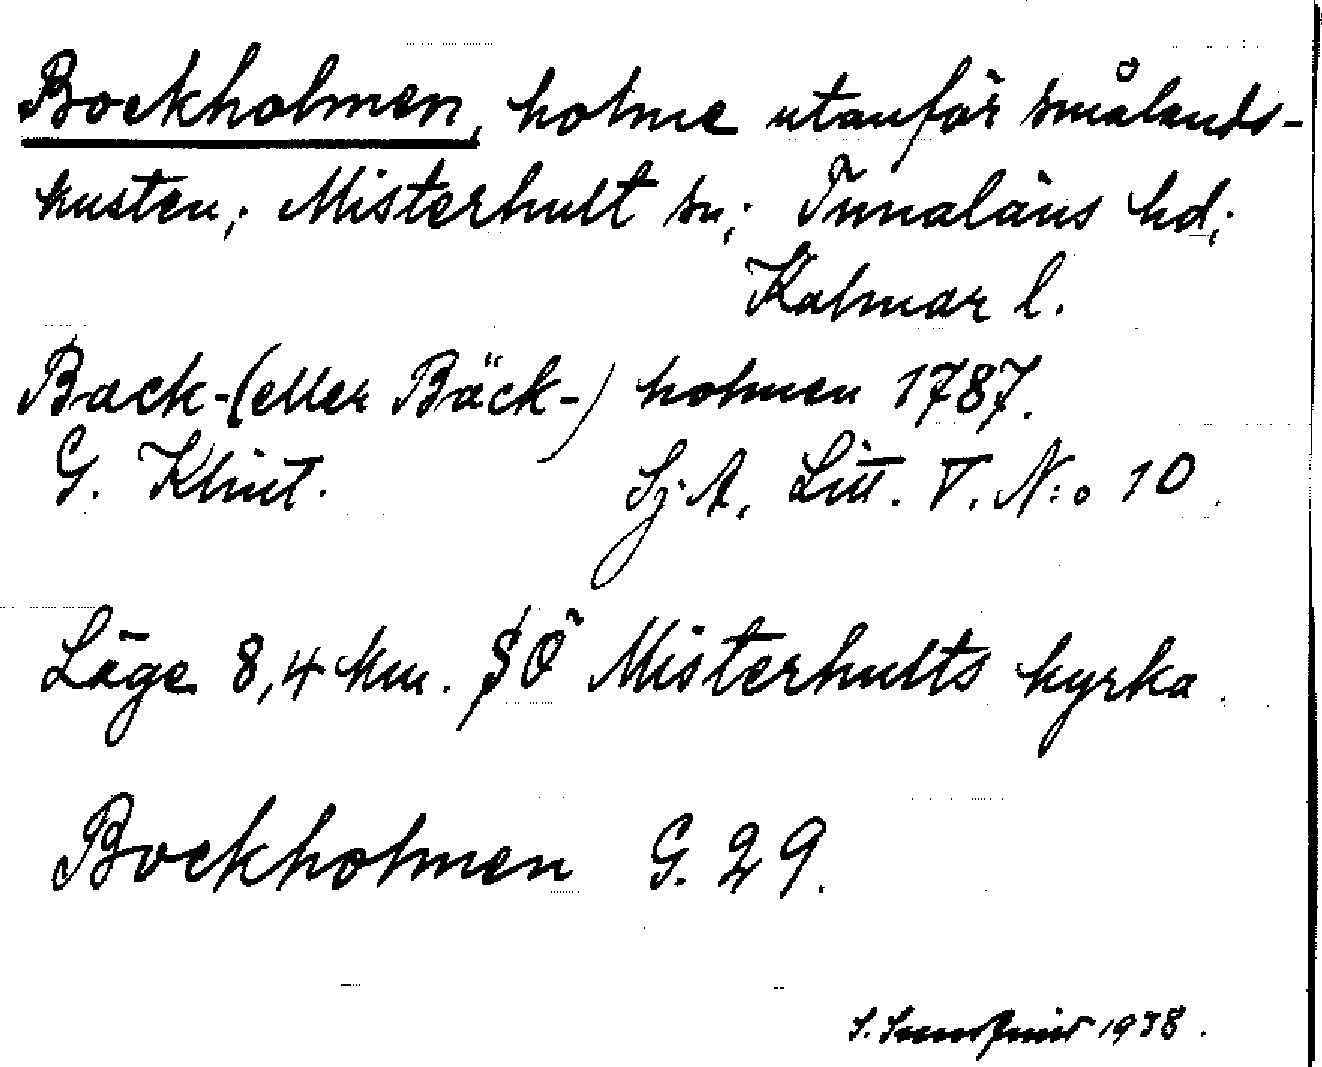 Bockholmen, holme utanför smålands-
kusten; Misterhult sn; Tunaläns hd;
Kalmar l.
Back-(eller Bäck-) holmen 1787.
G. Klint. Sj. A. Litt. V. N:o 10.
Läge 8,4 km. SÖ Misterhults kyrka.
Bockholmen G. 29.
S. 1938.